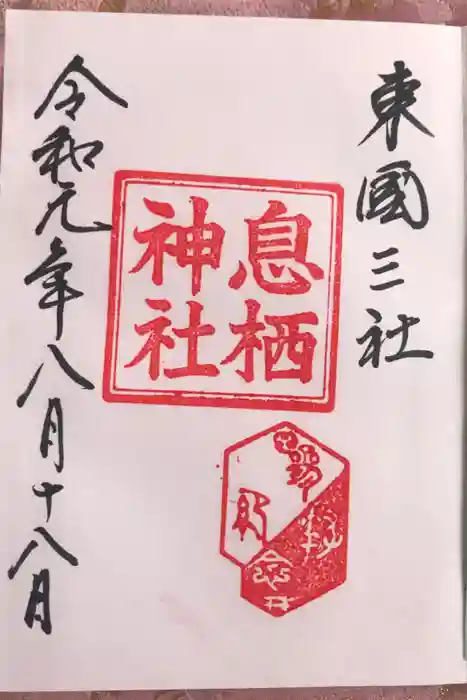 東國三社
息栖
神社
令和元年八月十八月